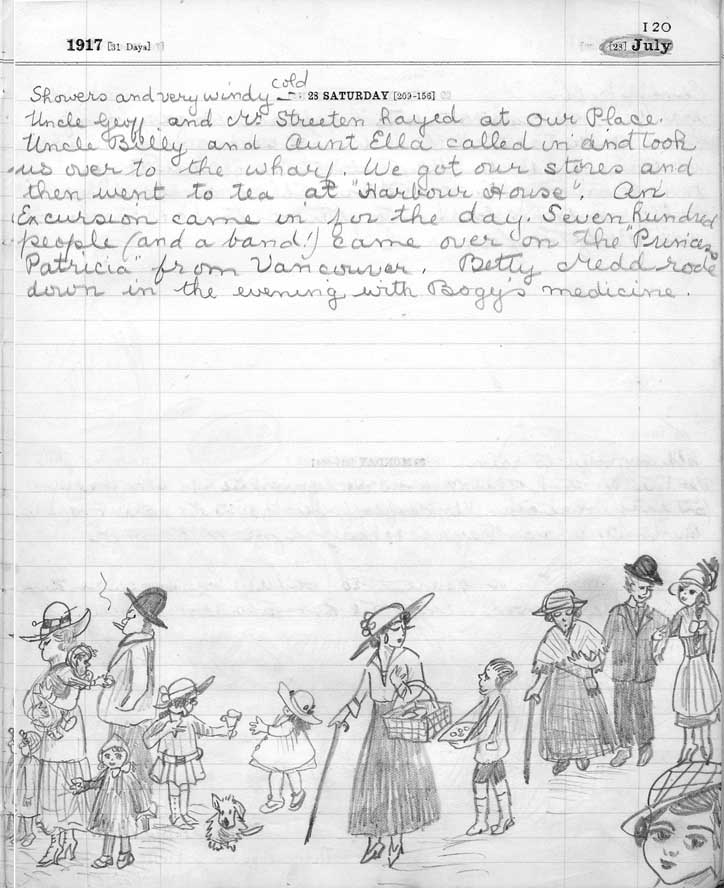 120
1917 [31 Days] [28] July
cold
28 SATURDAY [209-156]
Showers and very windy -
Uncle Geoff and Mr Streeten hayed at our Place.
Uncle Billy and Aunt Ella called in and took
us over to the wharf. We got our stores and
then went to tea at "Harbour House". An
Excursion came in for the day. Seven hundred
people (and a band!) came over on the "Princess
Patricia" from Vancouver. Betty Redd rode
down in the evening with Bogy's medicine.